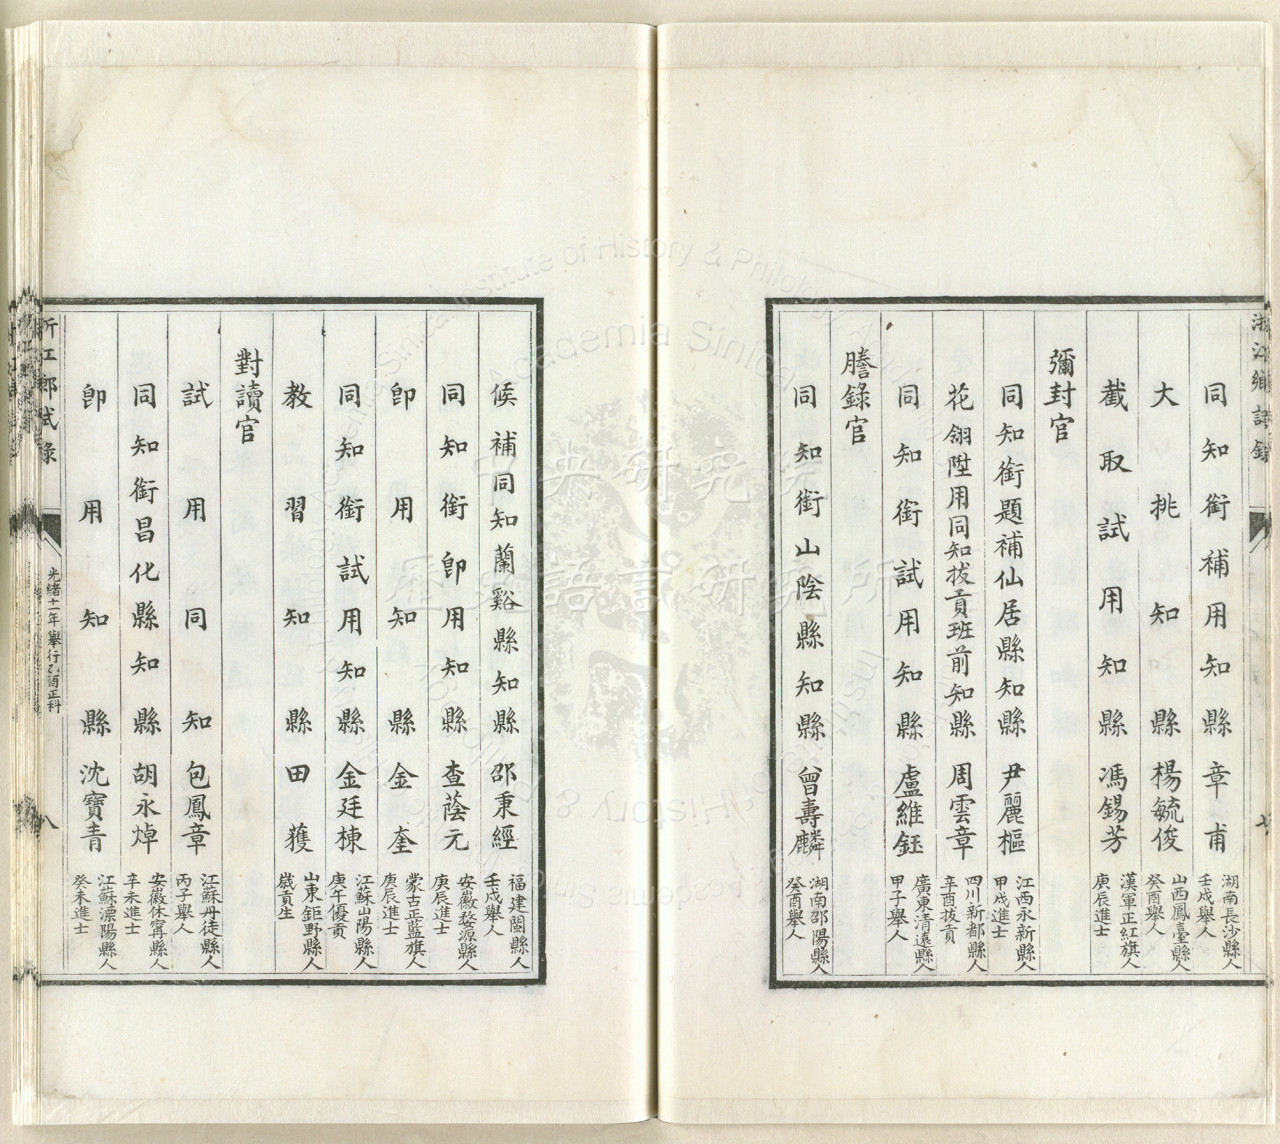 浙江鄉試錄
七
同知銜補用知縣章甫 湖南長沙縣人
壬戌舉人
大挑知縣楊毓俊 山西鳳臺縣人
癸酉舉人
截取試用知縣馮錫芳 漢軍正紅旗人
庚辰進士
彌封官
同知銜題補仙居縣知縣尹麗樞 江西永新縣人
甲戌進士
花翎陞用同知拔貢班前知縣周雲章 四川新都縣人
辛酉拔貢
同知銜試用知縣盧維鈺 廣東清遠縣人
甲子舉人
謄錄官
同知銜山陰縣知縣曾壽麟 湖南邵陽縣人
癸酉舉人
候補同知蘭谿縣知縣邵秉經 福建閩縣人
壬戌舉人
同知銜卽用知縣查蔭元 安徽婺源縣人
庚辰進士
卽用知縣金奎 蒙古正藍旗人
庚辰進士
同知銜試用知縣金廷棟 江蘇山陽縣人
庚午優貢
教習知縣田獲 山東鉅野縣人
歲貢生
對讀官
試用同知包鳳章 江蘇丹徒縣人
丙子舉人
同知銜昌化縣知縣胡永焯 安徽休寧縣人
辛未進士
卽用知縣沈寶青 江蘇溧陽縣人
癸未進士
浙江鄉試錄
光緒十一年舉行乙酉正科
八
中央研究院
歷史語言研究所
Institute of History & Philology, Academia Sinica